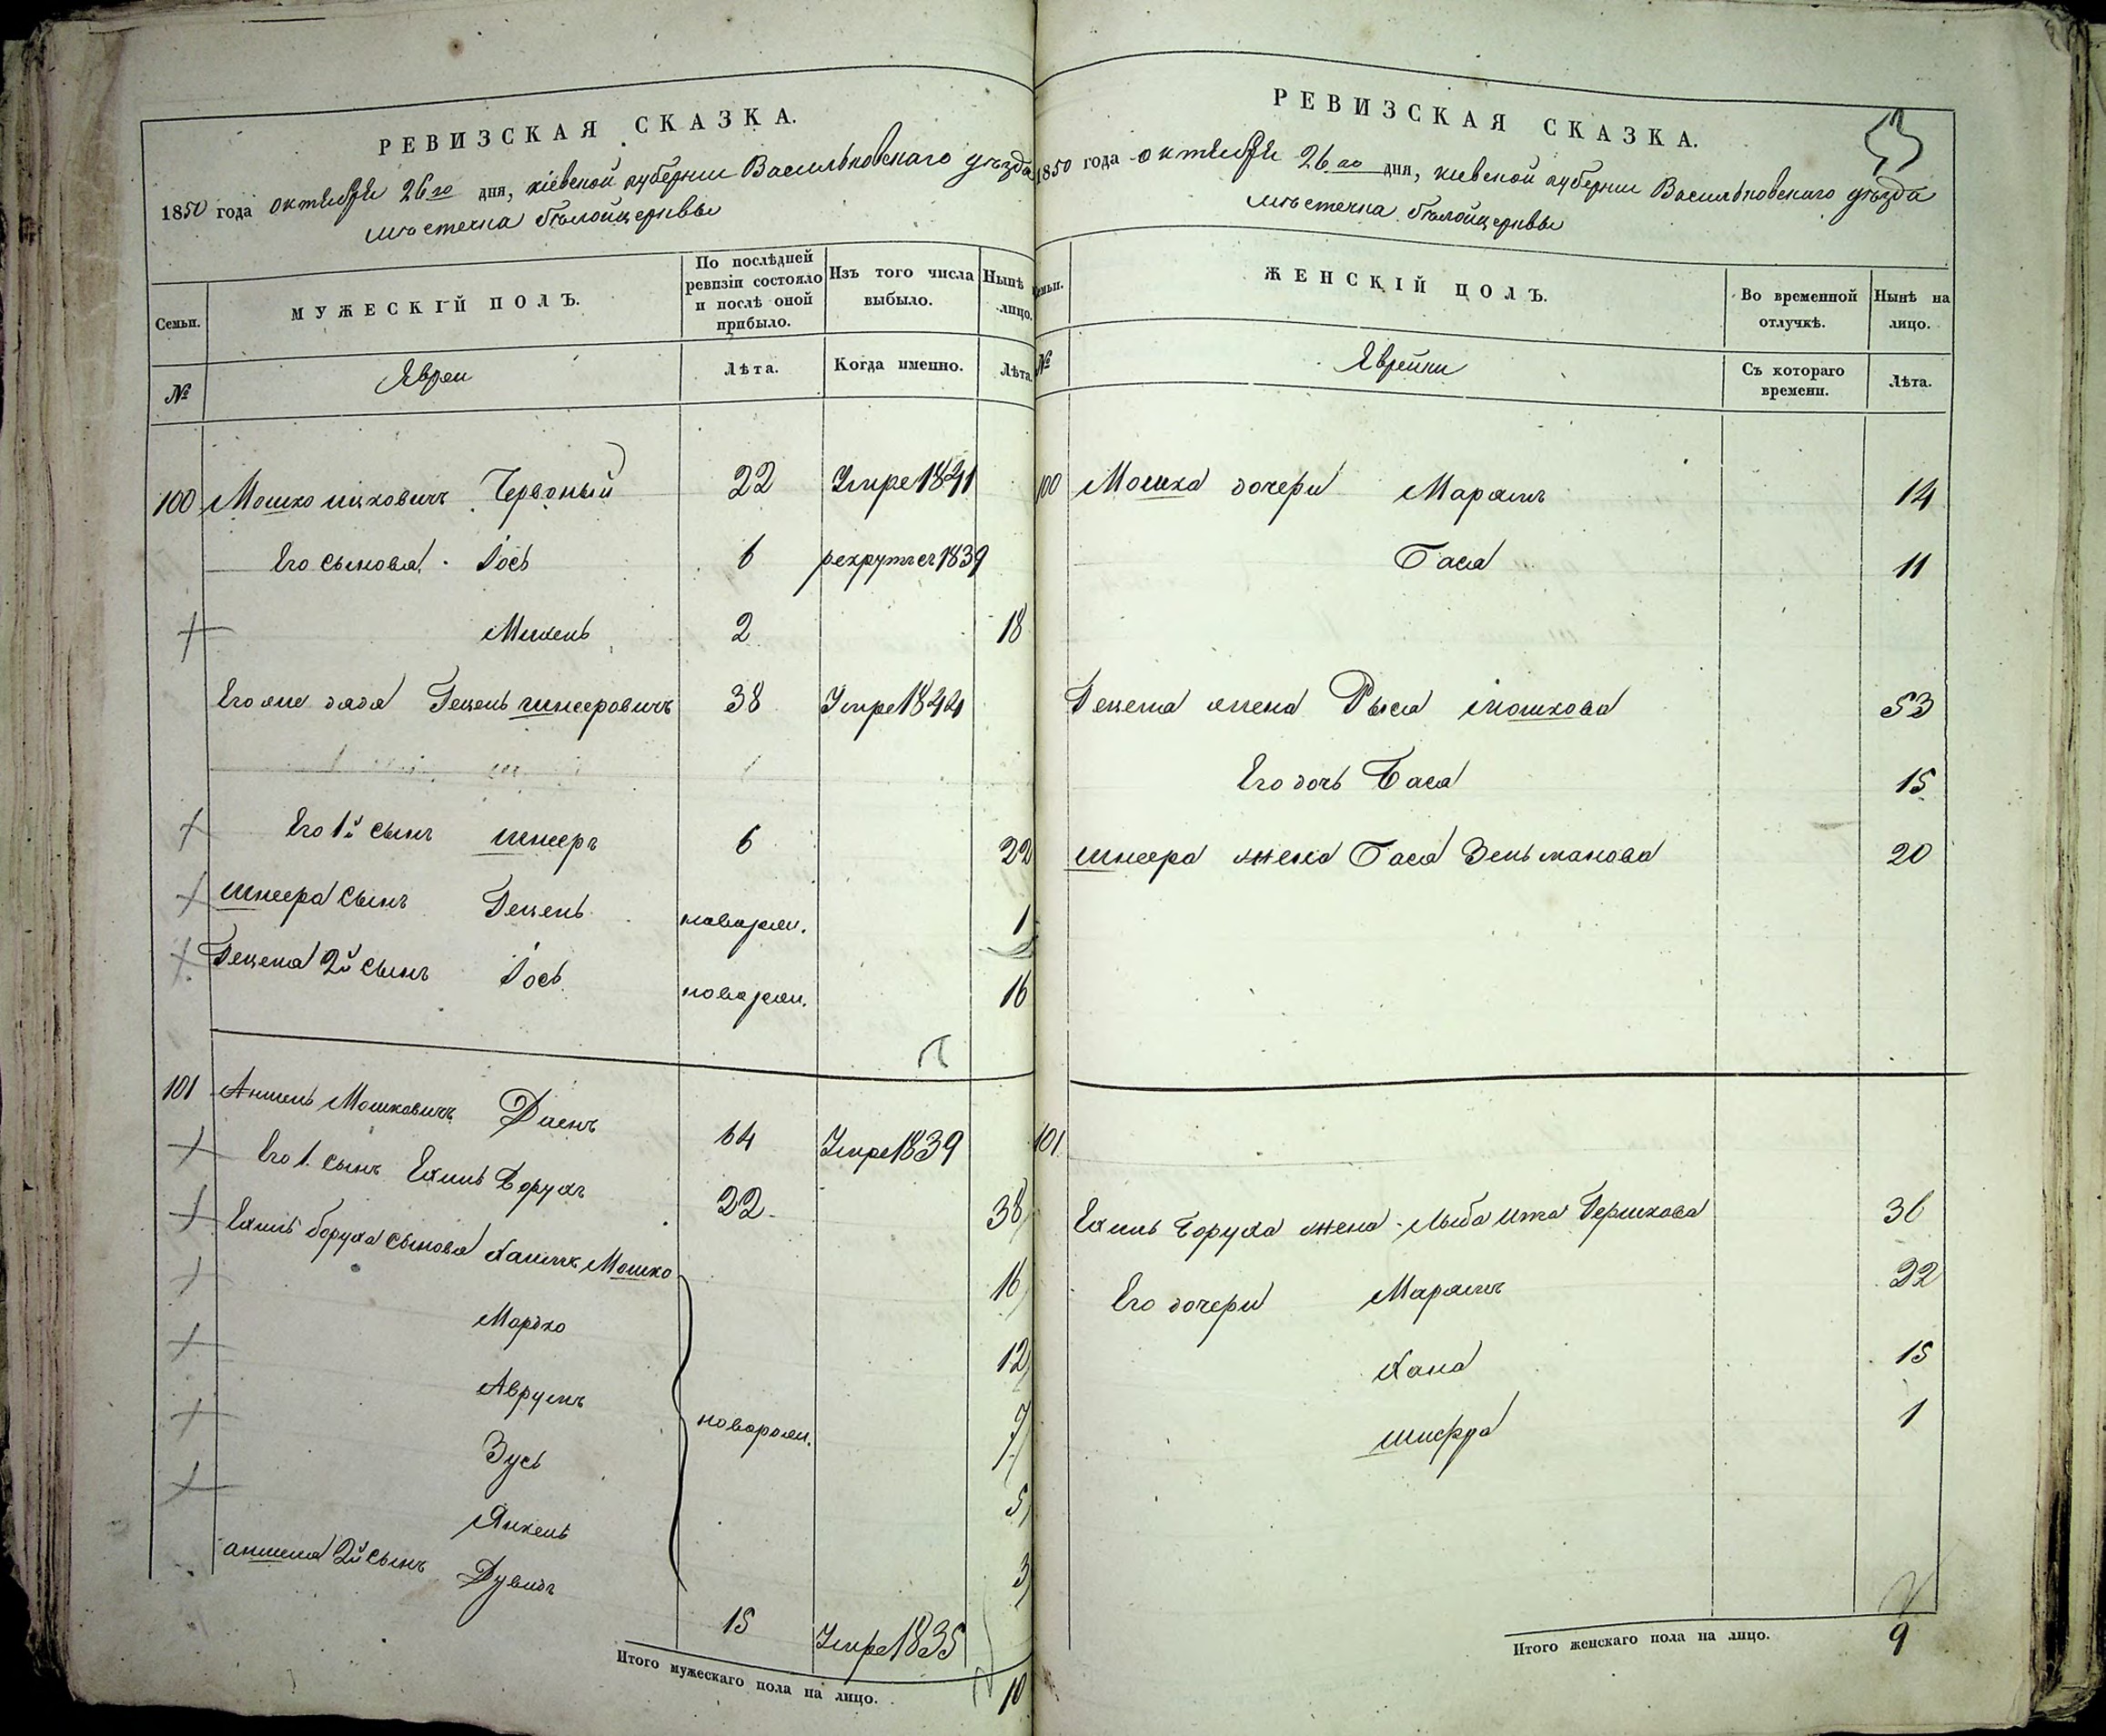 РЕВИЗСКАЯ СКАЗКА.
1850 года октября 26го дня, кіевской губерніи Васильковскаго уѣзда
мѣстечка бѣлойцеркви
Семьи.
МУЖЕСКІЙ ПОЛЪ.
По послѣдней ревизіи состояло и послѣ оной прибыло.
Изъ того числа выбыло.
Нынѣ лицо.
№
Евреи
Лѣта.
Когда именно.
Лѣта.
100 Мошко ицковичъ Червоный 22 Умре 1841
Его сыновя Іось 6 рекрутъ 1839
2 18
Его же дядя Гецель шнееровичъ 38 Умре 1844
Его 1й сынъ шнееръ 6 22
Шнеера сынъ Гецель новорож. 1
Гецеля 2й сынъ Іось новорож. 16
101 Аншель Мошковичъ Даенъ 64 Умре 1839
Его 1. сынъ Ехиль Борухъ 22 38
Ехиль боруха сыновя Хаимъ Мошко 16
Мордко 12
Аврумъ 7
новорож.
Зусь 5
Янкель 3
аншеля 2й сынъ Дувидъ 15 Умре 1835
Итого мужескаго пола на лицо. 10
РЕВИЗСКАЯ СКАЗКА.
53
1850 года октября 26го дня, кіевской губерніи Васильковскаго уѣзда
мѣстечка бѣлойцеркви
Семьи.
ЖЕНСКІЙ ПОЛЪ.
Во временной отлучкѣ.
Нынѣ на лицо.
№
Еврейки
Съ котораго времени.
Лѣта.
100 Мошка дочери Марямъ 14
Бася 11
Гецеля жена Рыся мошкова 53
Его дочь Бася 15
шнеера жена Бася Зельманова 20
101
Ехиль Боруха жена Лыба ита Гершкова 36
Его дочери Марямъ 22
Хана 15
шифра 1
Итого женскаго пола на лицо. 9